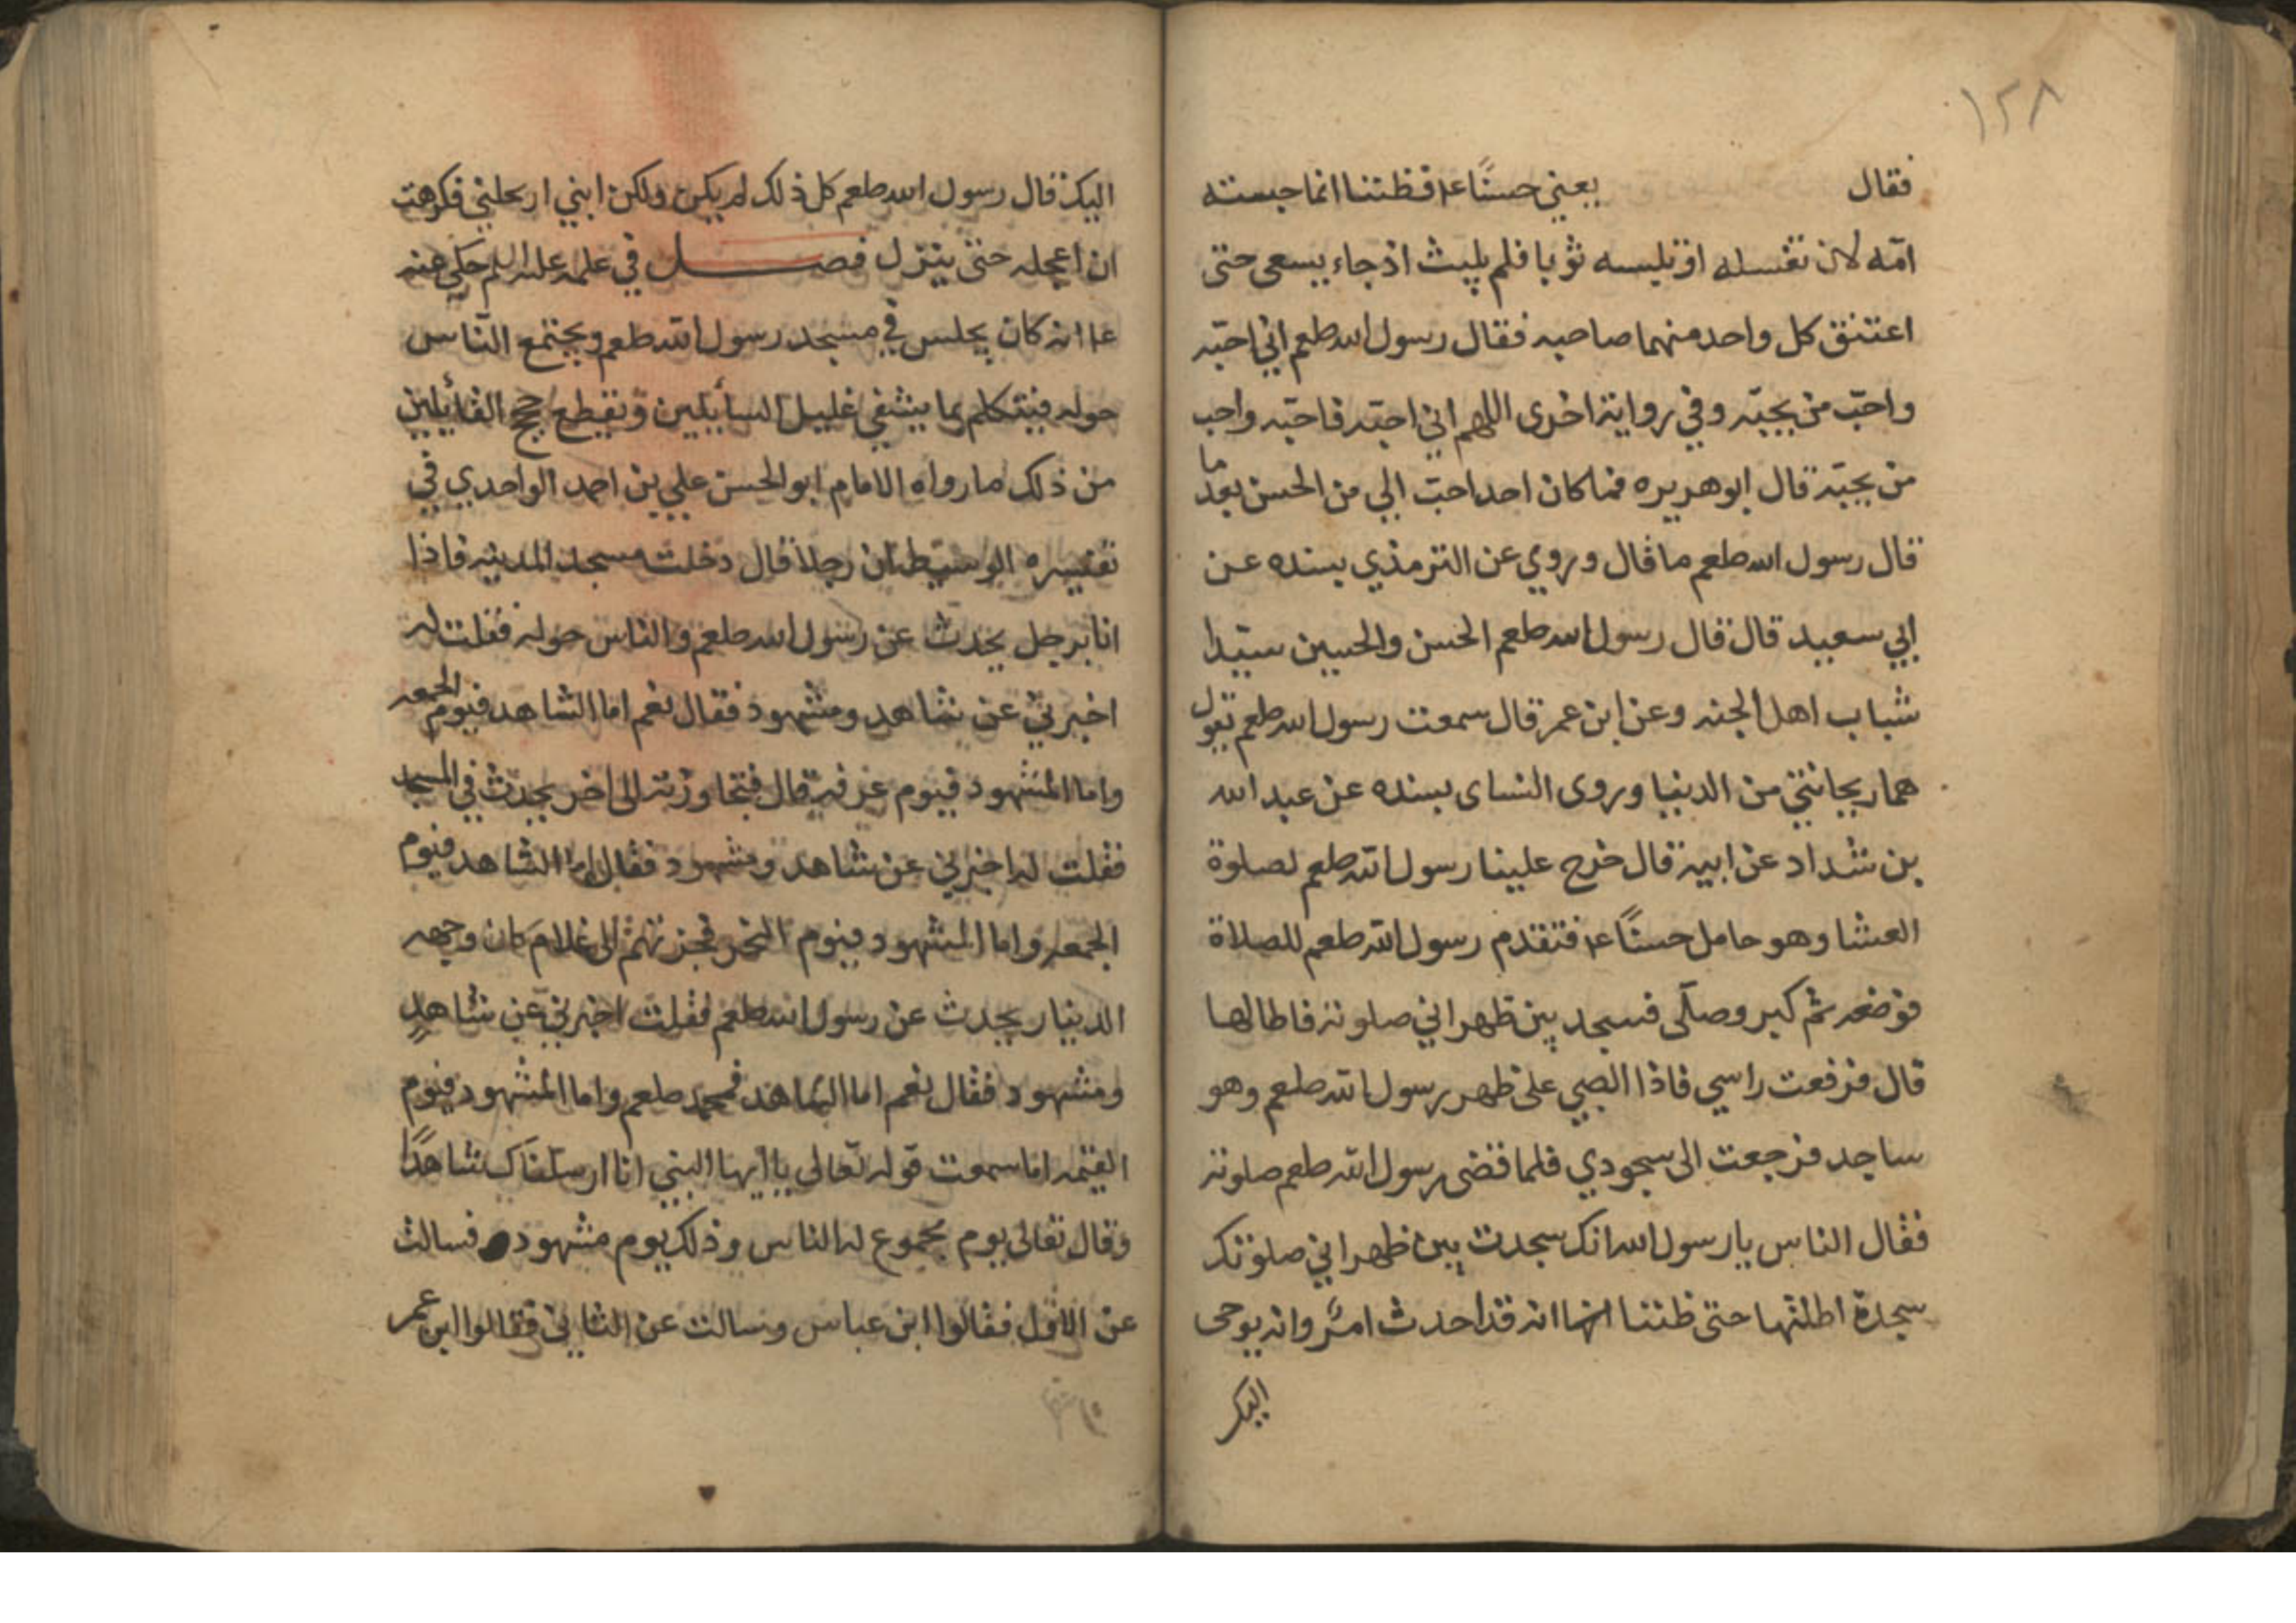 ١٢٨
فقال يعني حسنًا ع م فظننا انما حبسته
امّه لان تغسله او تلبسه ثوبا فلم يلبث اذ جاء يسعى حتى
اعتنق كل واحد منهما صاحبه فقال رسول الله صلعم اني احبّه
واحبّ من يحبّه وفي رواية اخرى اللهم اني احبّه فاحبّه واحب
من يحبّه قال ابو هريره فما كان احد احبّ الي من الحسن بعد ما
قال رسول الله صلعم ما قال وروي عن الترمذي بسنده عن
ابي سعيد قال قال رسول الله صلعم الحسن والحسين سيّدا
شباب اهل الجنه وعن ابن عمر قال سمعت رسول الله صلعم يقول
هما ريحانتي من الدنيا وروى النساى بسنده عن عبد الله
بن شداد عن ابيه قال خرج علينا رسول الله صلعم لصلوة
العشا وهو حامل حسنًا ع م فتقدم رسول الله صلعم للصلاة
فوضعه ثم كبر وصلّى فسجد بين ظهراني صلوته فاطالها
قال فرفعت راسي فاذا الصبي على ظهر رسول الله صلعم وهو
ساجد فرجعت الى سجودي فلما قضى رسول الله صلعم صلوته
فقال الناس يا رسول الله انك سجدت بين ظهراني صلوتك
سجدة اطلتها حتى ظننا انه قد احدث امرٌ وانه يوحى
اليك
اليك قال رسول الله صلعم كل ذلك لم يكن ولكن ابني ارتحلني فكرهت
ان اعجله حتى ينزل فصل في علمه عليه السلم حكي عنه
ع م انه كان يجلس في مسجد رسول الله صلعم ويجتمع النّاس
حوله فيتكلم بما يشفي غليل السأيلين ويقطع حجج القأيلين
من ذلك ما رواه الامام ابو الحسن علي بن احمد الواحدي في
تفسيره الوسيط ان رجلا قال دخلت مسجد المدينه فاذا
انا برجل يحدث عن رسول الله صلعم والناس حوله فقلت له
اخبرني عن شاهد ومشهود فقال نعم اما الشاهد فيوم الجمعه
واما المشهود فيوم عرفه قال فتجاوزته الى اخر يحدث في المسجد
فقلت له اخبرني عن شاهد ومشهود فقال اما الشاهد فيوم
الجمعه واما المشهود فيوم النحر فجزتهم الى غلام كان وجهه
الدينار يحدث عن رسول الله صلعم فقلت اخبرني عن شاهدٍ
ومشهود فقال نعم اما الشاهد فمحمد صلعم واما المشهود فيوم
القيمه اما سمعت قوله تعالى يا ايها النبي انا ارسلناك شاهدًا
وقال تعالى يوم مجموع له الناس وذلك يوم مشهود فسالت
عن الاول فقالوا ابن عباس وسالت عن الثاني فقالوا ابن عمر